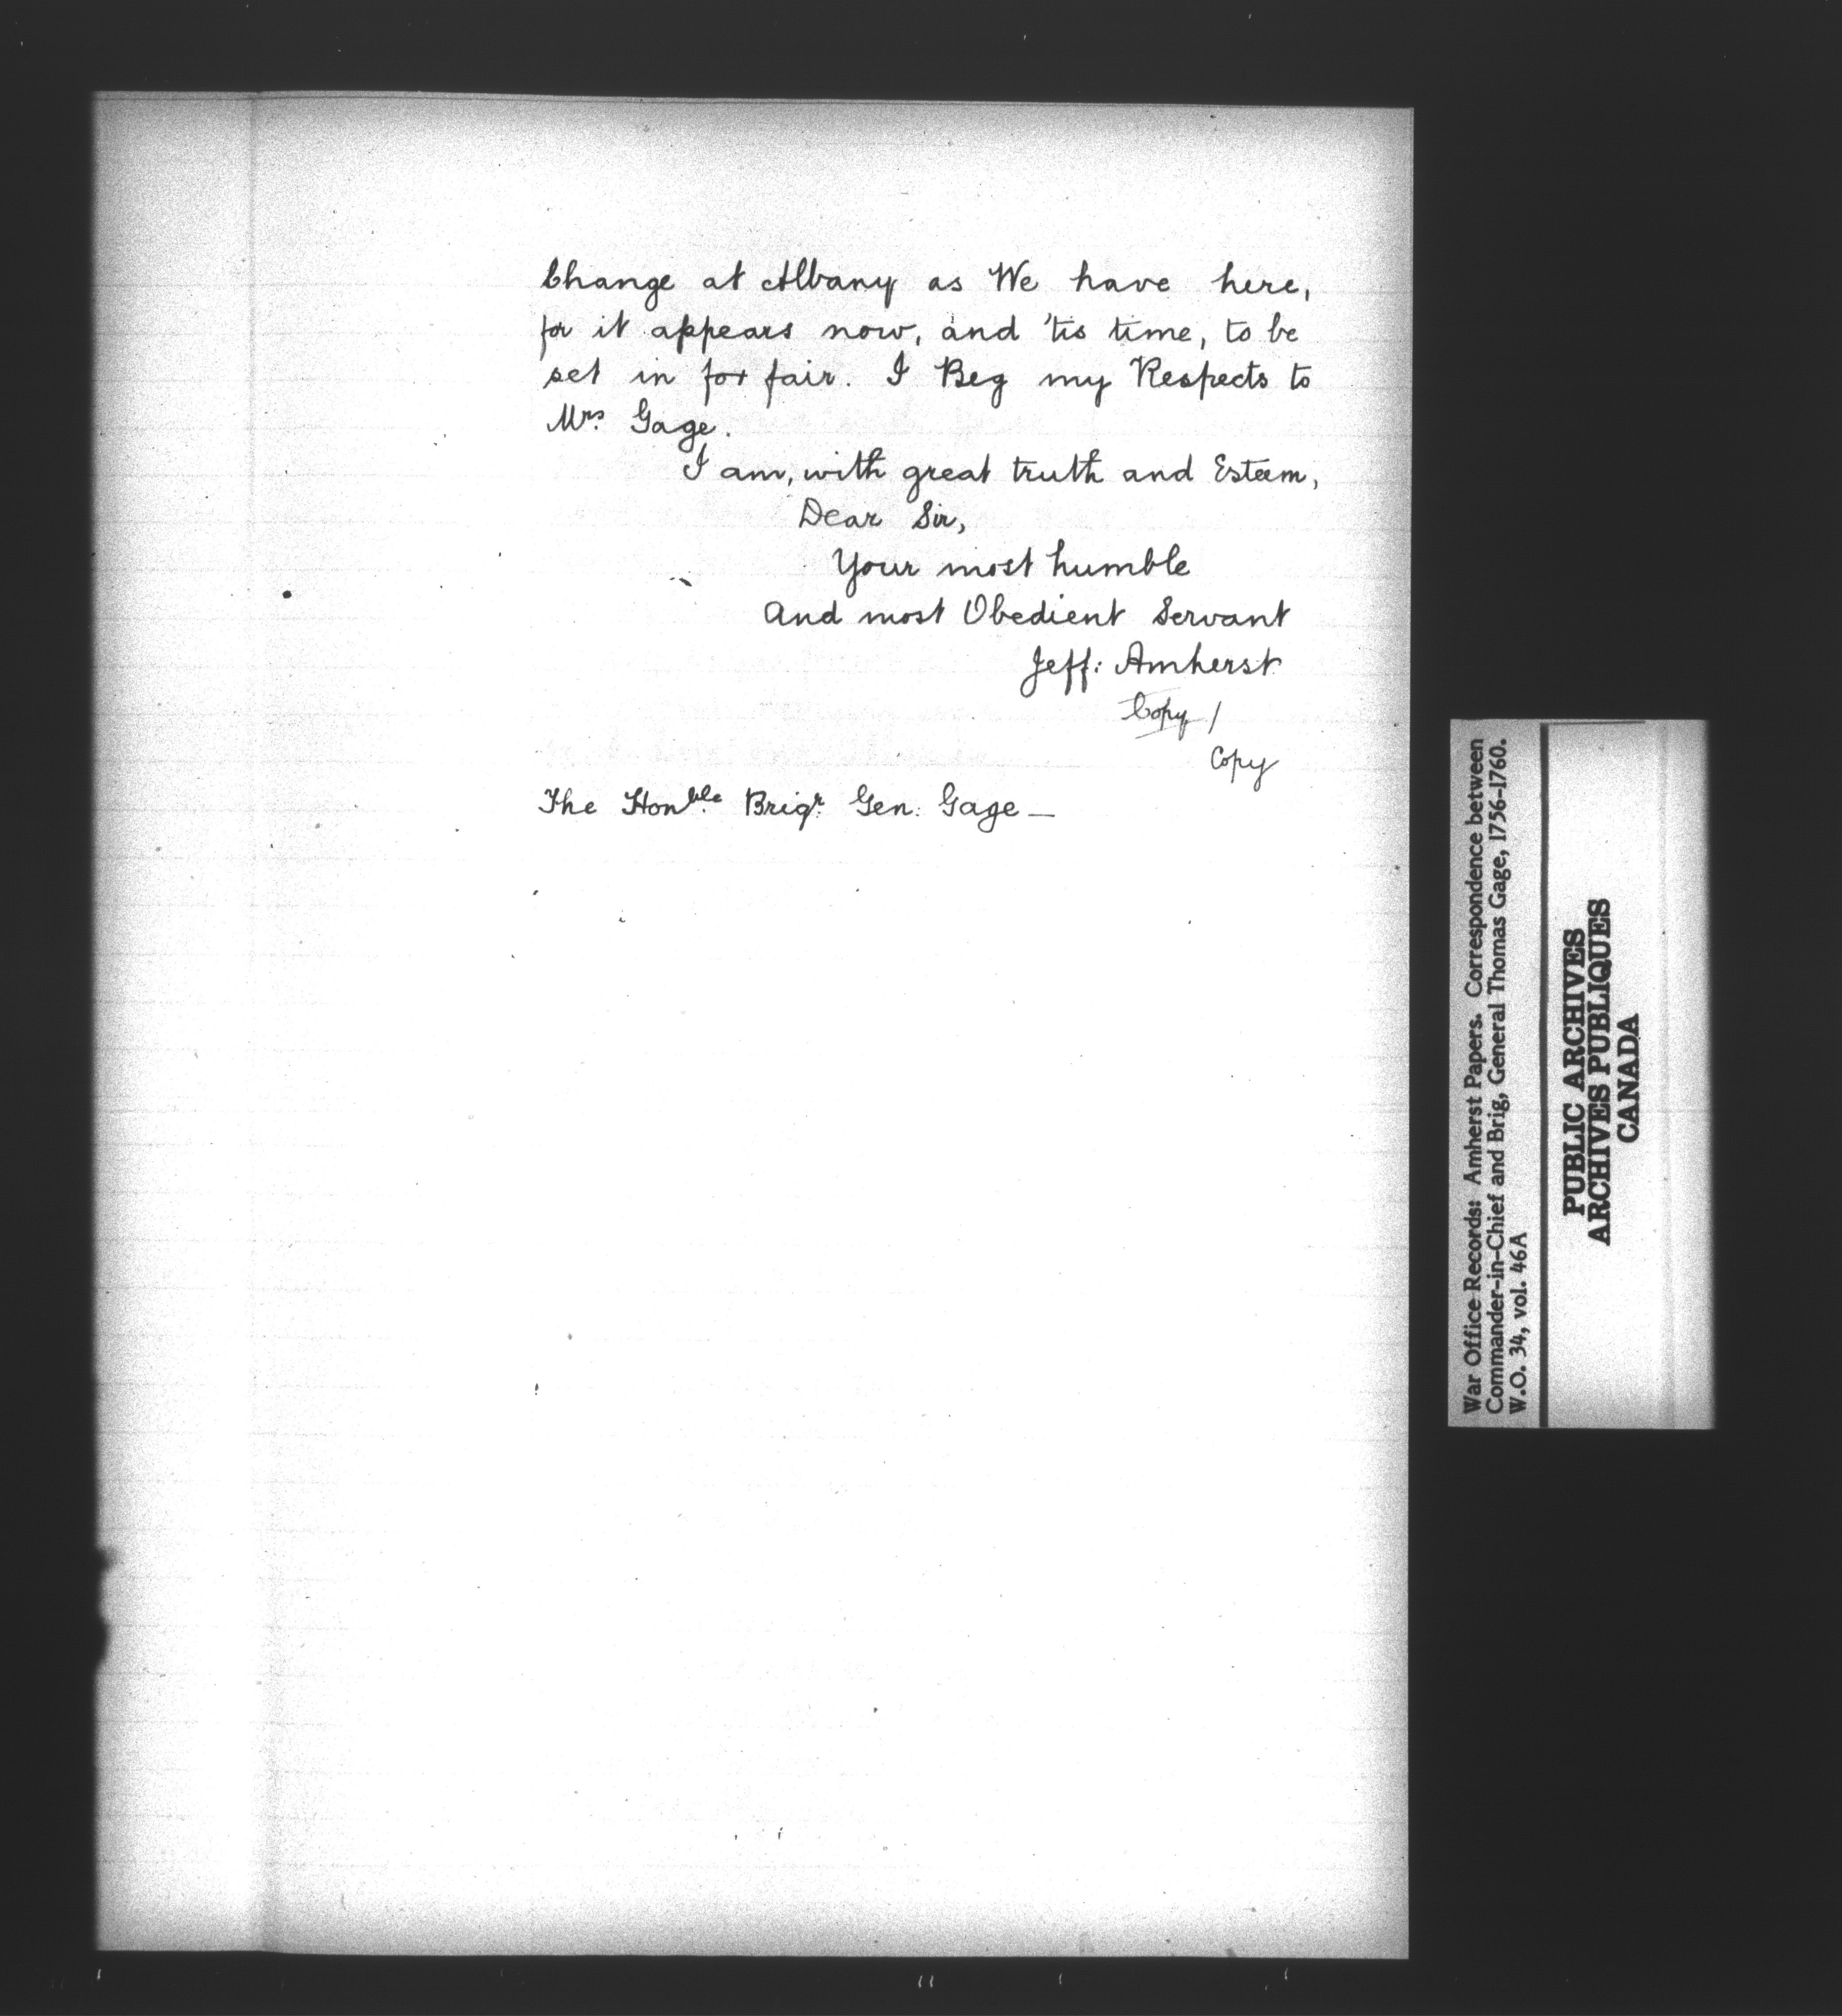 Change at Albany as We have here,
for it appears now, and 'tis time, to be
set in for fair. I Beg my Respects to
Mrs. Gage.
I am, with great truth and Esteem,
Dear Sir,
Your most humble
And most Obedient Servant
Jeff: Amherst
Copy /
Copy
The Honble. Brigr. Gen: Gage —
War Office Records: Amherst Papers. Correspondence between
Commander-in-Chief and Brig, General Thomas Gage, 1756-1760.
W.O. 34, vol. 46A
PUBLIC ARCHIVES
ARCHIVES PUBLIQUES
CANADA